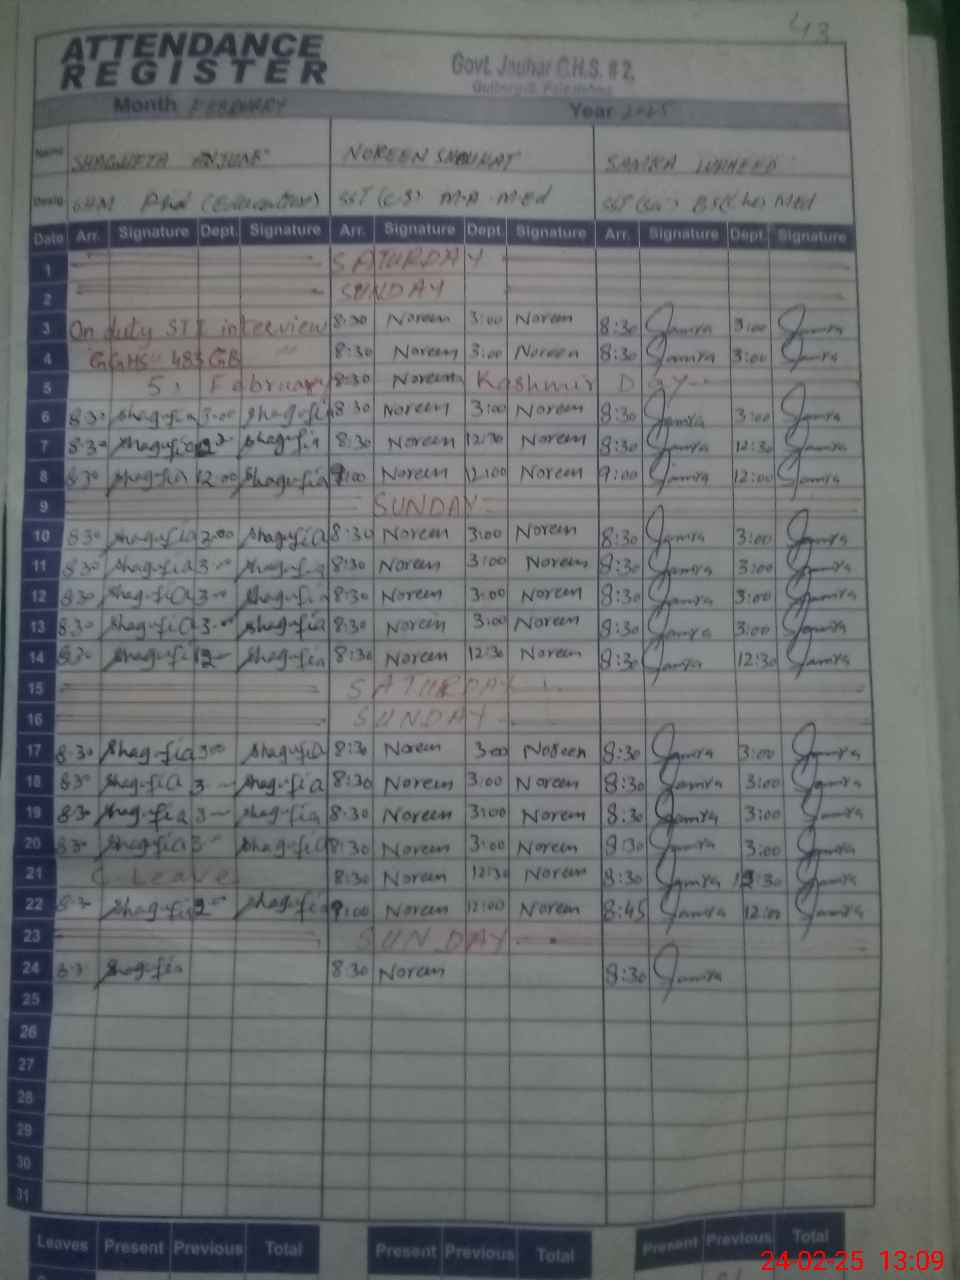 43
ATTENDANCE
REGISTER
Govt. Jauhar G.H.S. # 2,
Month FEBRUARY Year 2025
Name SHAGUFTA ANJUM NOREEN SHOUKAT SAMRA WAHEED
Desig. Phd (Education) SST (C.S) M.A M.Ed
Date Arr. Signature Dept. Signature Arr. Signature Dept. Signature Arr. Signature Dept. Signature
1 SATURDAY
2 SUNDAY
3 On duty STI interview 8:30 Noreen 3:00 Noreen 8:30 Samra 3:00 Samra
4 GGHS 483 GB " 8:30 Noreen 3:00 Noreen 8:30 Samra 3:00 Samra
5 5, February 8:30 Noreen Kashmir Day
6 8:30 Shagufta 3:00 Shagufta 8:30 Noreen 3:00 Noreen 8:30 Samra 3:00 Samra
7 8:30 Shagufta Shagufta 8:30 Noreen 12:30 Noreen 8:30 Samra 12:30 Samra
8 8:30 Shagufta 12:00 Shagufta 9:00 Noreen 12:00 Noreen 9:00 Samra 12:00 Samra
9 SUNDAY
10 8:30 Shagufta Shagufta 8:30 Noreen 3:00 Noreen 8:30 Samra 3:00 Samra
11 8:30 Shagufta 3- Shagufta 8:30 Noreen 3:00 Noreen 8:30 Samra 3:00 Samra
12 8:30 Shagufta 3- Shagufta 8:30 Noreen 3:00 Noreen 8:30 Samra 3:00 Samra
13 8:30 Shagufta 3- Shagufta 8:30 Noreen 3:00 Noreen 8:30 Samra 3:00 Samra
14 8:30 Shagufta 12- Shagufta 8:30 Noreen 12:30 Noreen 8:30 Samra 12:30 Samra
15 SATURDAY
16 SUNDAY
17 8:30 Shagufta 3:00 Shagufta 8:30 Noreen 3:00 Noreen 8:30 Samra 3:00 Samra
18 8:30 Shagufta 3- Shagufta 8:30 Noreen 3:00 Noreen 8:30 Samra 3:00 Samra
19 8:30 Shagufta 3- Shagufta 8:30 Noreen 3:00 Noreen 8:30 Samra 3:00 Samra
20 8:30 Shagufta 3- Shagufta 8:30 Noreen 3:00 Noreen 8:30 Samra 3:00 Samra
21 C Leave 8:30 Noreen 12:30 Noreen 8:30 Samra 12:30 Samra
22 8:30 Shagufta Shagufta 9:00 Noreen 12:00 Noreen 8:45 Samra 12:00 Samra
23 SUNDAY
24 8:30 Shagufta 8:30 Noreen 8:30 Samra
25
26
27
28
29
30
31
Leaves Present Previous Total Present Previous Total Present Previous Total
24-02-25 13:09